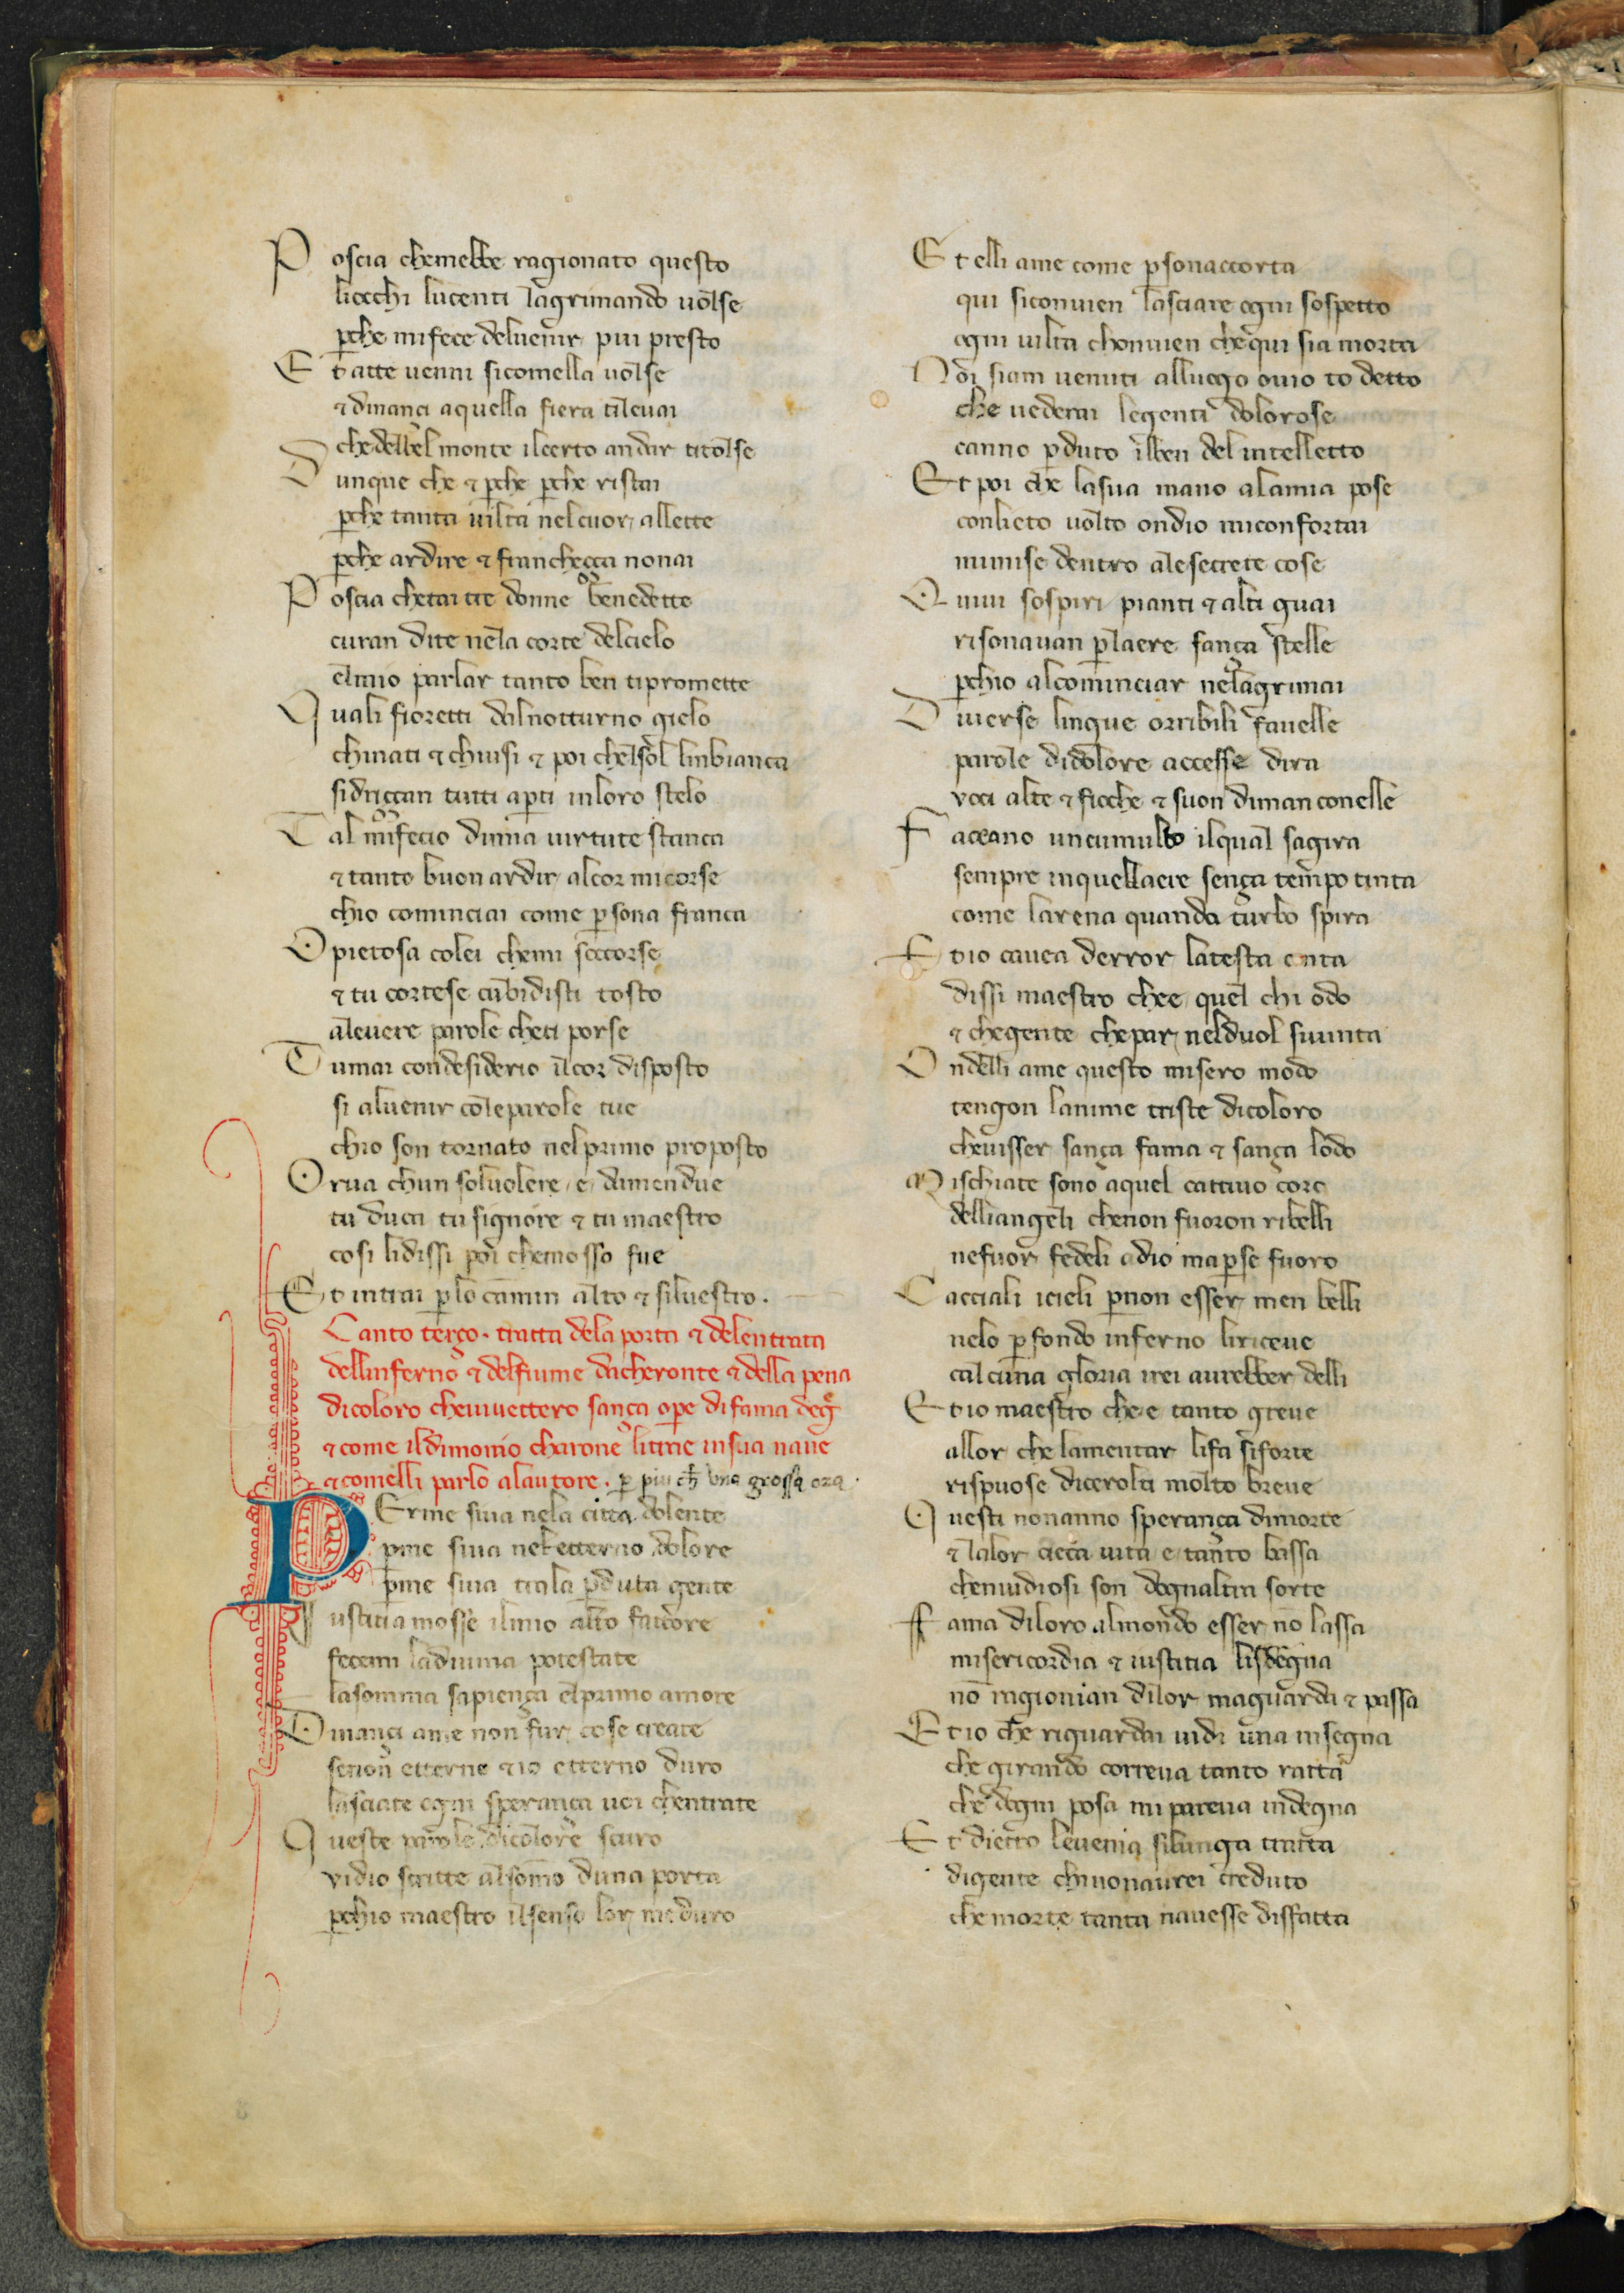 Poscia chemebbe ragionato questo
liocchi lucenti lagrimando uolse
pche mifece deluenir piu presto
Et atte uenni sicomella uolse
⁊ dinanci aquella fiera tileuai
chedelbel monte ilcorto andar titolse
Dunque che ⁊ pche pche ristai
pche tanta uilta nelcuor allette
pche ardire ⁊ franchecca nonai
Poscia chetai tre donne benedette
curan dite nela corte delcielo
elmio parlar tanto ben tipromette
Quali fioretti dalnotturno gielo
chinati ⁊ chiusi ⁊ poi chelsol linbianca
sidriccan tutti apti inloro stelo
Tal mifecio dimia uirtute stanca
⁊ tanto buon ardir alcor micorse
chio cominciai come psona franca
O pietosa colei chemi soccorse
⁊ tu cortese cubidisti tosto
aleuere parole cheti porse
Tumai condesiderio ilcor disposto
si aluenir coleparole tue
chio son tornato nelprimo proposto
Orua chun soluolere e dimendue
tu duca tu signore ⁊ tu maestro
cosi lidissi poi chemosso fue
Et intrai plo camin alto ⁊ siluestro.
Canto terço. tratta dela porta ⁊ delentrata
dellinferno ⁊ delfiume dacheronte ⁊ della pena
dicoloro cheuiuettero sança ope difama deg
⁊ come ildimonio charone litrae insua naue
⁊ comelli parlo alautore. p piu ch una grossa ora.
PErme siua nela citta dolente
pme siua neletterno dolore
pme siua trala pduta gente
Iustitia mosse ilmio alto fattore
fecemi ladiuina potestate
lasomma sapiença elprimo amore
Dinançi ame non fur cose create
senon etterne ⁊ io etterno duro
lasciate ogni sperança uoi chentrate
Queste parole dicolore scuro
vidio scritte alsomo duna porta
pchio maestro ilsenso lor me duro
Et elli ame come psonaccorta
qui siconuien lasciare ogni sospetto
ogni uilta chonuien chequi sia morta
Noi siam uenuti alluogo ouio to detto
che uederai legenti dolorose
canno pduto ilben del intelletto
Et poi che lasua mano alamia pose
conlieto uolto ondio miconfortai
mimise dentro alesecrete cose
Quiui sospiri pianti ⁊ alti guai
risonauan placre sança stelle
pchio alcominciar nelagrimai
Diuerse lingue orribili fauelle
parole didolore accesse dira
voci alte ⁊ fioche ⁊ suon diman conelle
Faceano un tumulto ilqual sagira
sempre inquellaere sença tempo tinta
come larena quanda turbo spira
Et io cauea derror latesta cinta
dissi maestro chee quel chi odo
⁊ chegente chepar nelduol siuinta
Ondelli ame questo misero modo
tengon lanime triste dicoloro
cheuisser sança fama ⁊ sança lodo
Mischiate sono aquel cattiuo coro
delliangeli chenon fuoron ribelli
nefuor fedeli adio mapse fuoro
Cacciali icieli pnon esser men belli
nelo pfondo inferno liriceue
calcuna gloria irei aurebber delli
Et io maestro che e tanto greue
allor che lamentar lifa siforte
rispuose dicerolti molto breue
Questi nonanno sperança dimorte
⁊ lalor cieca uita e tanto bassa
cheinuidiosi son dognaltra sorte
Fama diloro almondo esser no lassa
misericordia ⁊ iustitia lisdegna
no ragionian dilor maguarda ⁊ passa
Et io che riguardai uidi una insegna
che girando correua tanto ratta
che dogni posa mi pareua indegna
Et dietro leuenia silunga tratta
digente chinonaurei creduto
che morte tanta nauesse disfatta